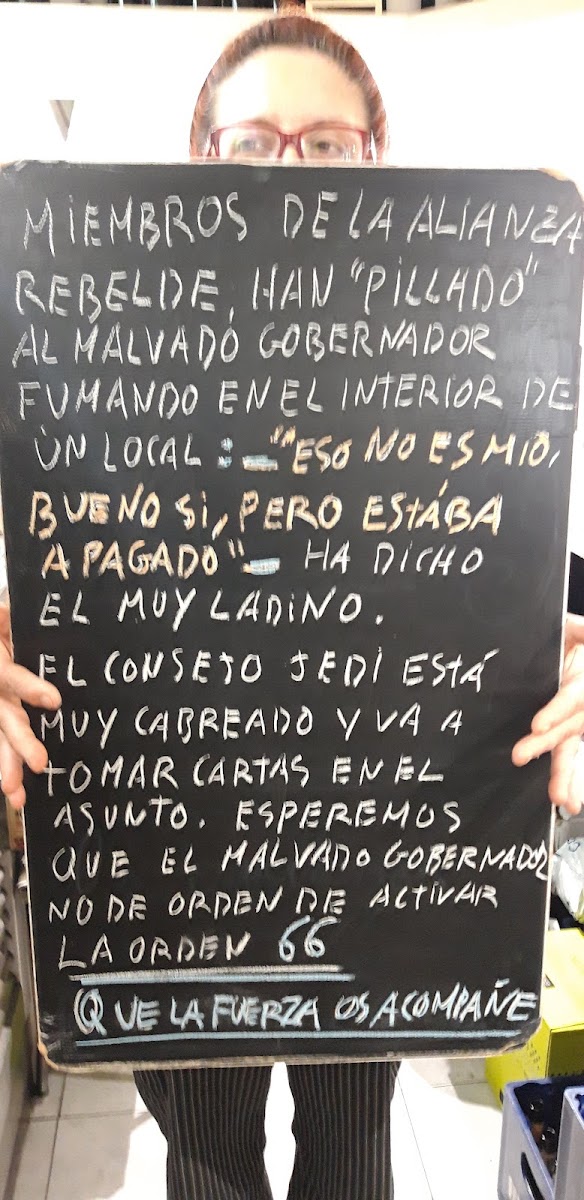 MIEMBROS DE LA ALIANZA
REBELDE, HAN "PILLADO"
AL MALVADO GOBERNADOR
FUMANDO EN EL INTERIOR DE
UN LOCAL : - "ESO NO ES MIO,
BUENO SI, PERO ESTÁBA
APAGADO" - HA DICHO
EL MUY LADINO.
EL CONSEJO JEDI ESTÁ
MUY CABREADO Y VA A
TOMAR CARTAS EN EL
ASUNTO. ESPEREMOS
QUE EL MALVADO GOBERNADOR
NO DE ORDEN DE ACTIVAR
LA ORDEN 66
QUE LA FUERZA OS ACOMPAÑE